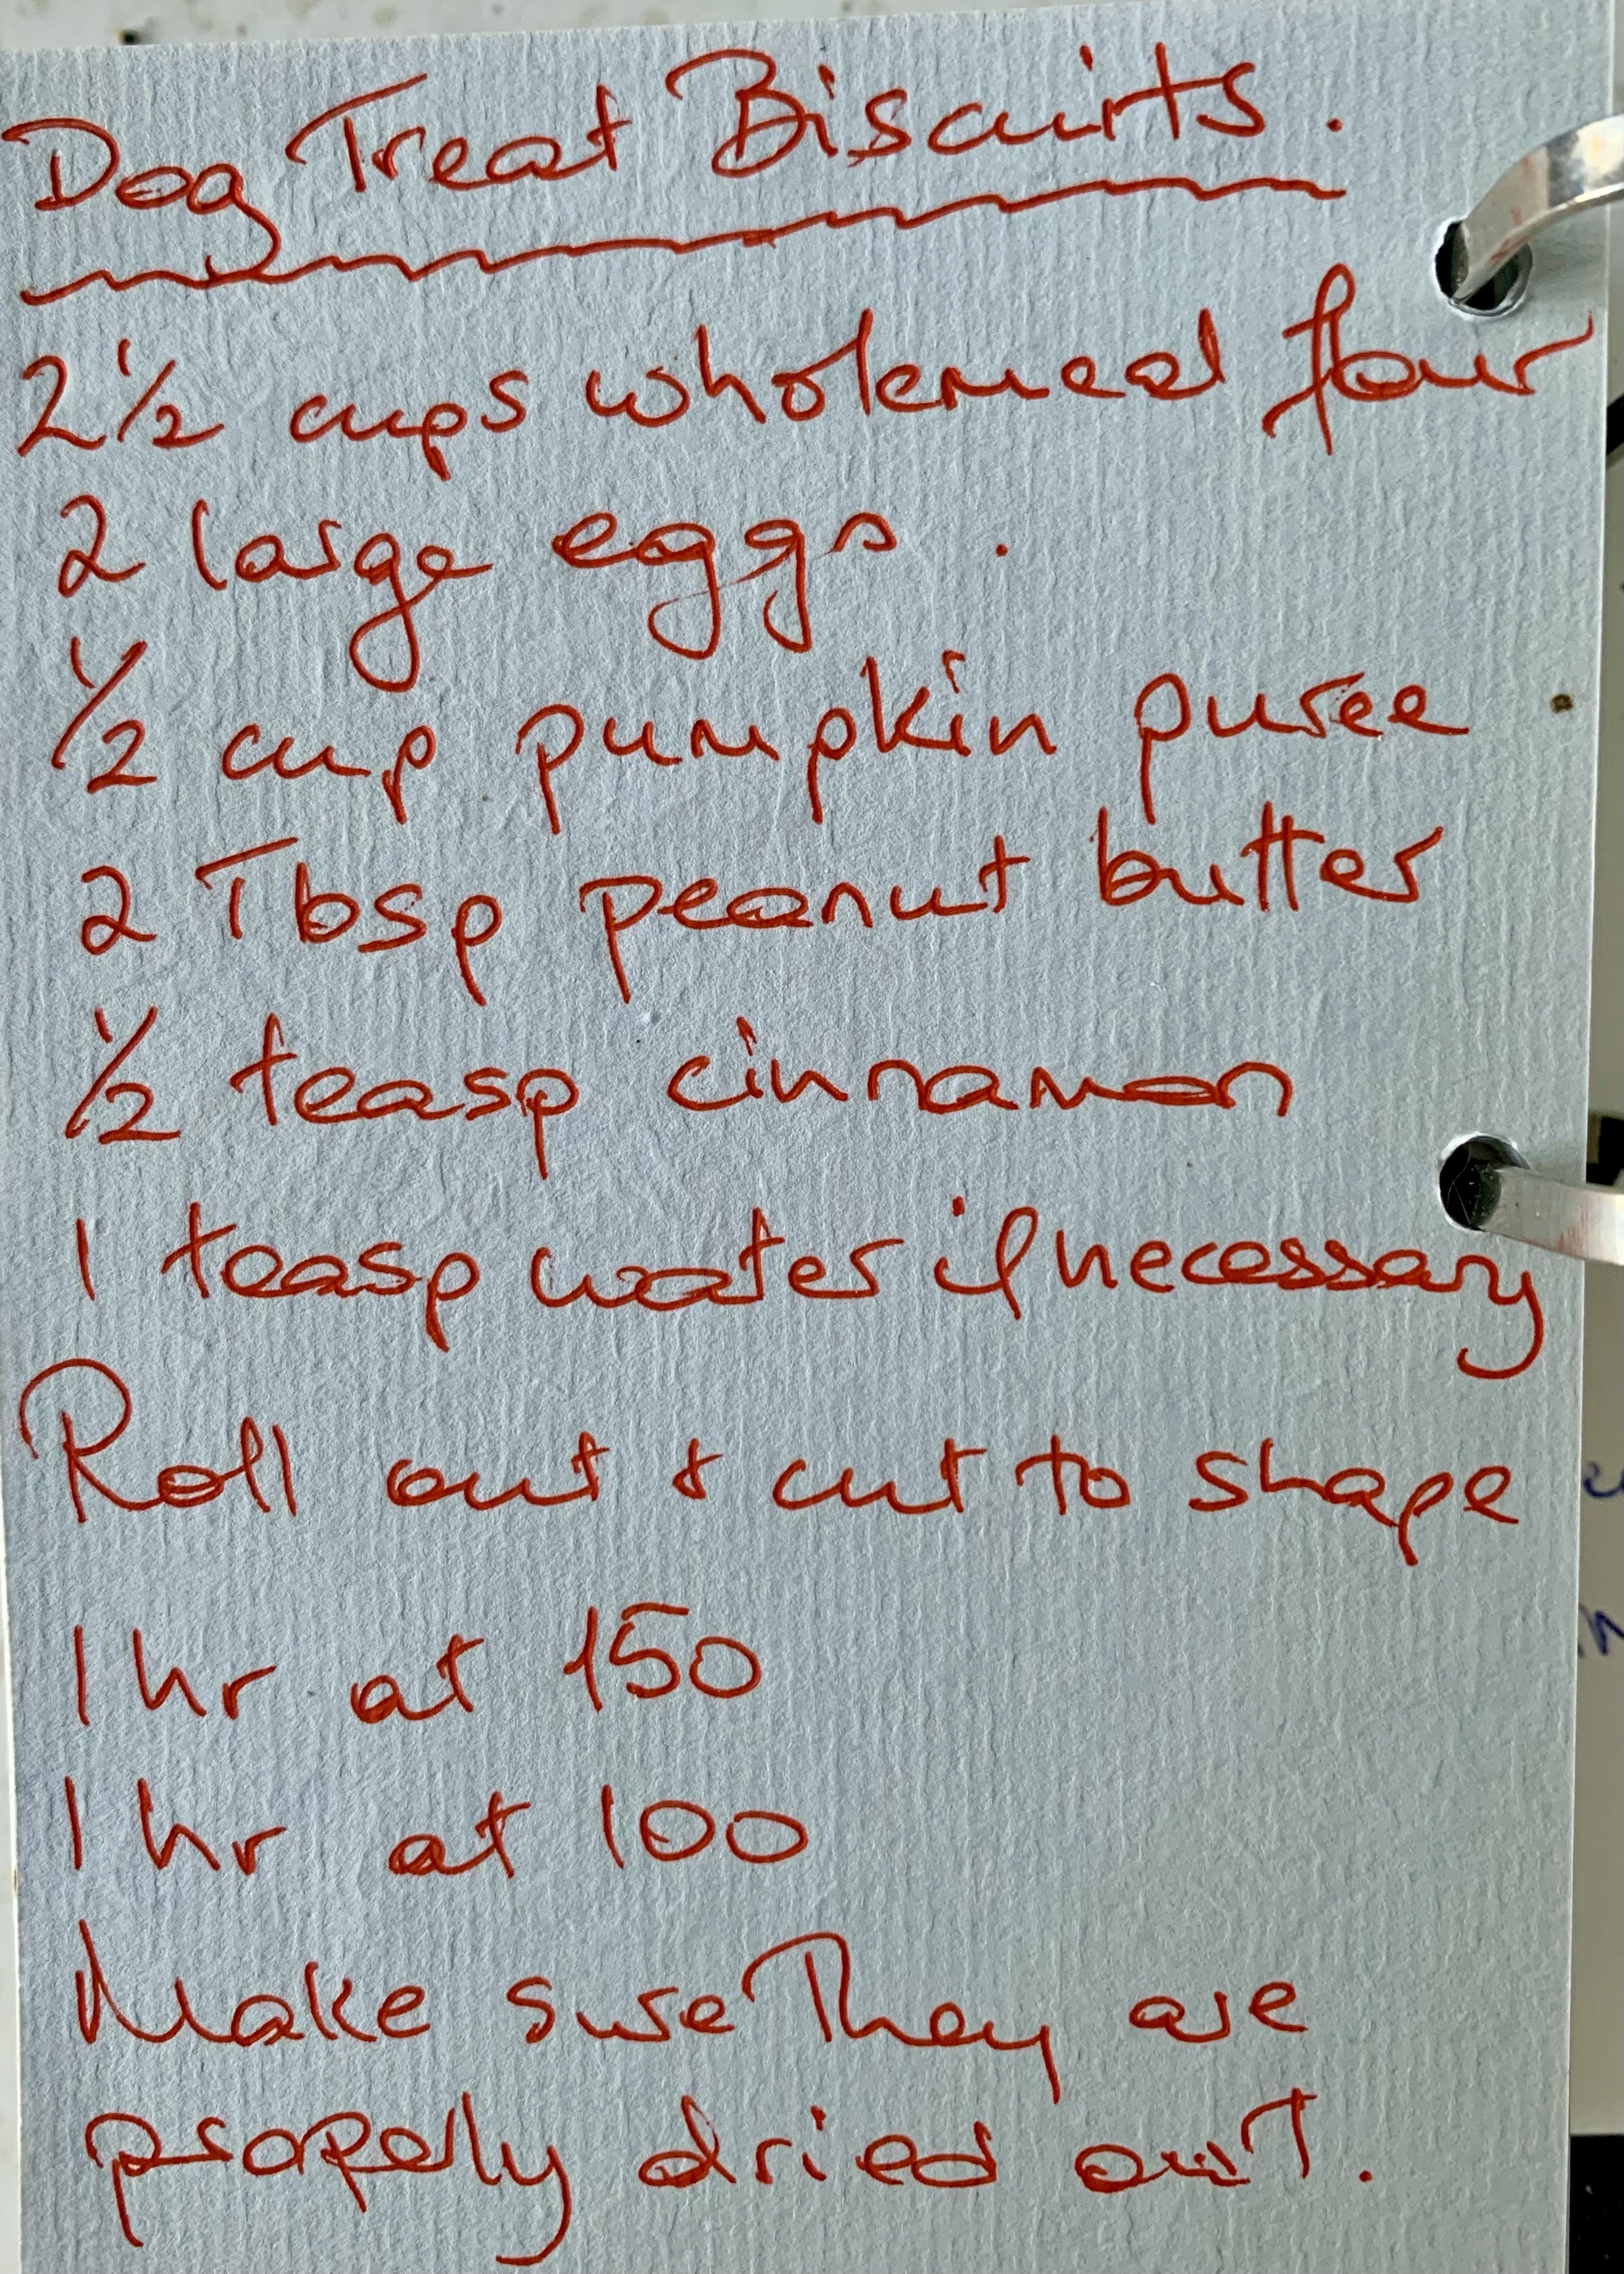 Dog Treat Biscuits.
2½ cups wholemeal flour
2 large eggs.
½ cup pumpkin puree
2 Tbsp peanut butter
½ teasp cinnamon
1 teasp water if necessary
Roll out & cut to shape
1 hr at 150
1 hr at 100
Make sure They are
properly dried out.